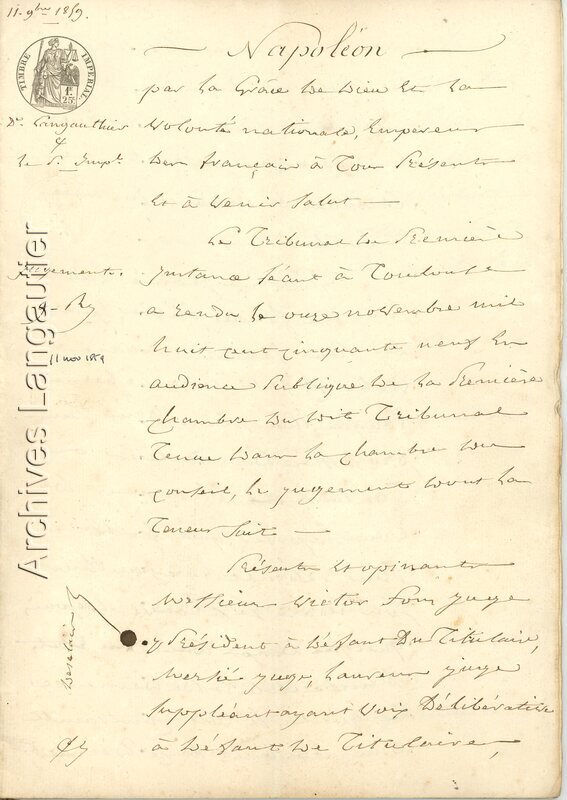 11. 9bre 1859
TIMBRE IMPERIAL
1F. 25c.
Napoléon
par la Grâce de Dieu et la
volonté nationale, Empereur
des français à Tous Présents
et à venir Salut
Dr. Langauthier
le P. Impl.
Le Tribunal de Première
Instance séant à Toulouse
a rendu le onze novembre mil
huit cent cinquante neuf En
audience Publique de la Première
chambre du dit Tribunal
Tenue dans la chambre du
conseil, le jugement dont la
Teneur suit
Jugement.
11 nov 1859
Présents et opinants
Messieurs Victor Fons juge
Président à défaut Du Titulaire,
juge, Laurens juge
Suppléant ayant voix Délibérative
à défaut de Titulaire,
Archives Langautier